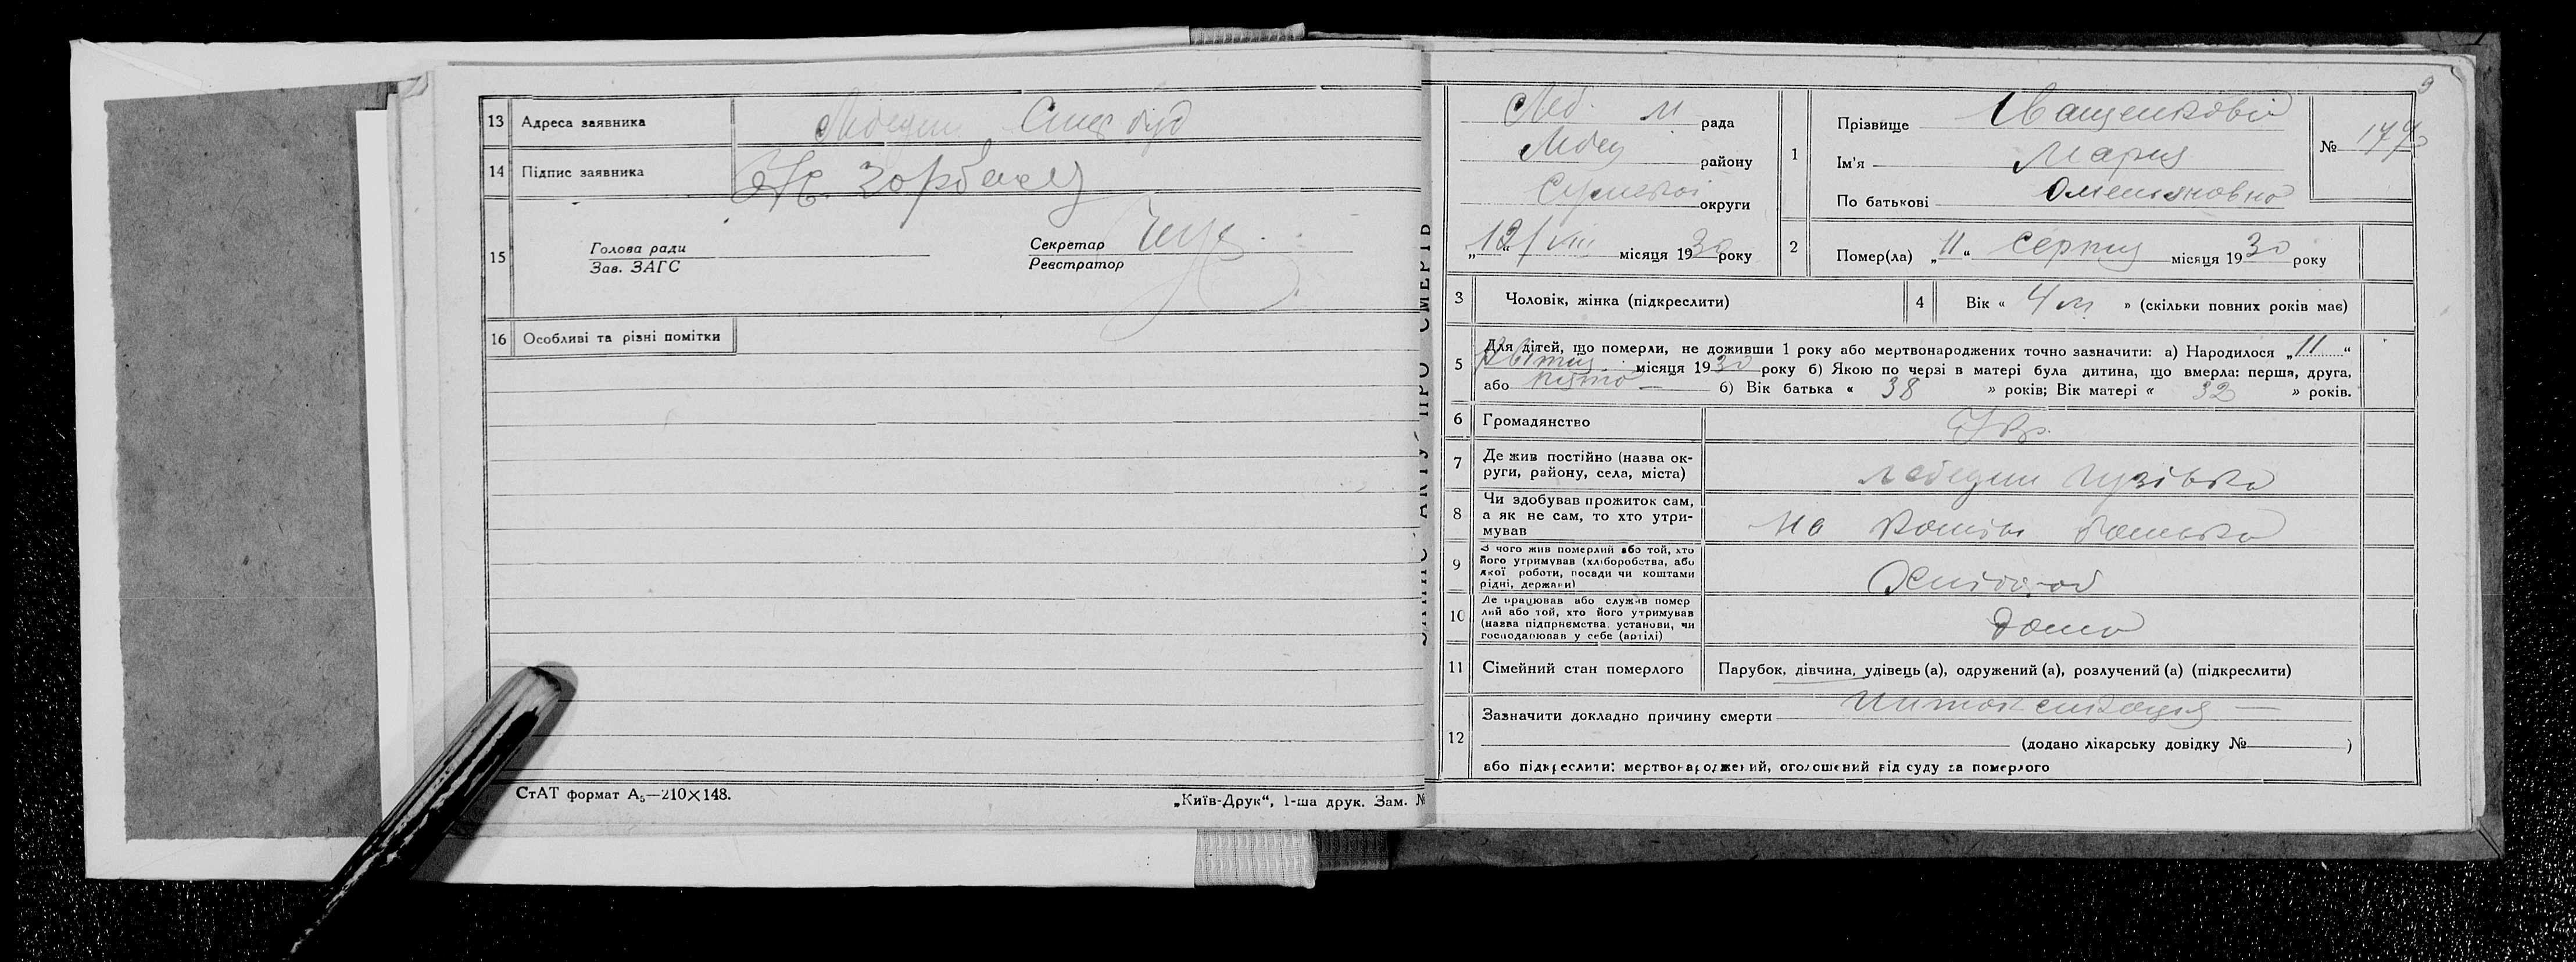 13 Адреса заявника Лебедин
14 Підпис заявника
15 Голова ради
Зав. ЗАГС
Секретар
Реєстратор
16 Особливі та різні помітки
СтАТ формат А₅—210×148.
„Київ-Друк“, 1-ша друк. Зам. №
Леб. м рада
Лебед району
Сумської округи
„12“ VIII місяця 1930 року
1 Прізвище Іващенкова
Ім'я Мария
По батькові Омеляновна
№ 177
2 Помер(ла) „11“ серпня місяця 1930 року
3 Чоловік, жінка (підкреслити)
4 Вік « 4 м » (скільки повних років має)
5 Для дітей, що померли, не доживши 1 року або мертвонароджених точно зазначити: а) Народилося „11“
квітня місяця 1930 року б) Якою по черзі в матері була дитина, що вмерла: перша, друга,
або пята б) Вік батька « 38 » років; Вік матері « 32 » років.
6 Громадянство
7 Де жив постійно (назва округи, району, села, міста) Лебедин
8 Чи здобував прожиток сам, а як не сам, то хто утримував на кошти батька
9 З чого жив померлий або той, хто його утримував (хліборобства, або якої роботи, посади чи коштами рідні, держави)
10 Де працював або служив померлий або той, хто його утримував (назва підприємства, установи, чи господарював у себе (артілі) дома
11 Сімейний стан померлого Парубок, дівчина, удівець (а), одружений (а), розлучений (а) (підкреслити)
12 Зазначити докладно причину смерти Интоксикация
(додано лікарську довідку № )
або підкреслити: мертвонароджений, оголошений від суду за померлого